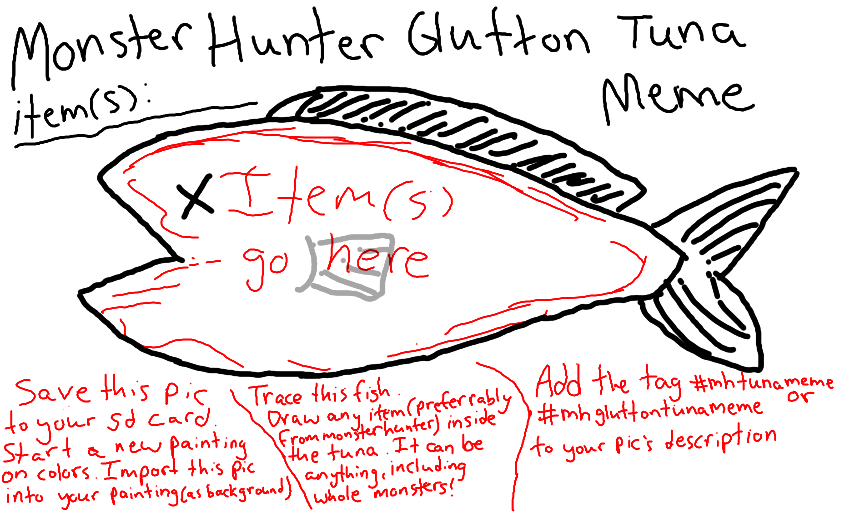 Monster Hunter Glutton Tuna
Meme
item(s):
Item(s)
go here
Save this pic
to your sd card.
Start a new painting
on colors. Import this pic
into your painting (as background)
Trace this fish.
Draw any item (preferrably
from monster hunter) inside
the tuna. It can be
anything, including
whole monsters!
Add the tag #mhtunameme
or
#mhgluttontunameme
to your pic's description